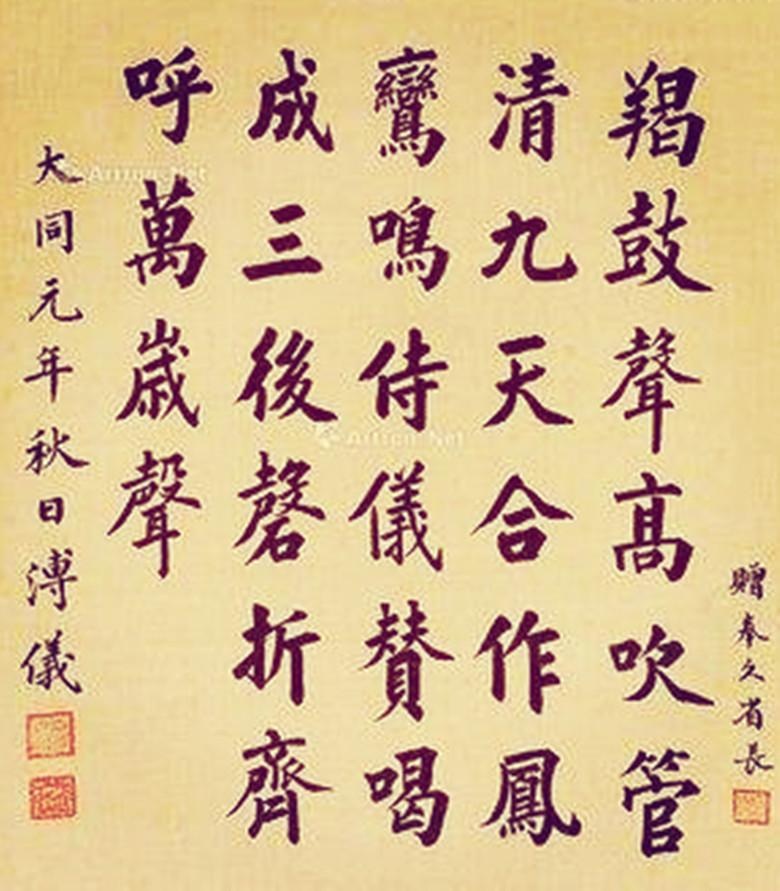 贈奉久省長
羯鼓聲高吹管
清九天合作鳳
鸞鳴侍儀贊喝
成三後磬折齊
呼萬歲聲
大同元年秋日溥儀
Artron.Net
Artron.Net